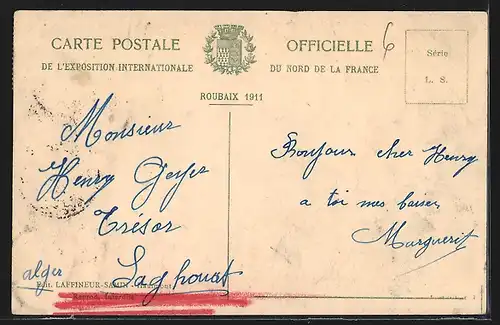 CARTE POSTALE OFFICIELLE
DE L'EXPOSITION INTERNATIONALE DU NORD DE LA FRANCE
ROUBAIX 1911
Série
L. S.
6
Monsieur
Henry
Trésor
Laghouat
alger
Édit. LAFFINEUR-SAMIN
Bonjour cher Henry
a toi mes baiser
Marguerit